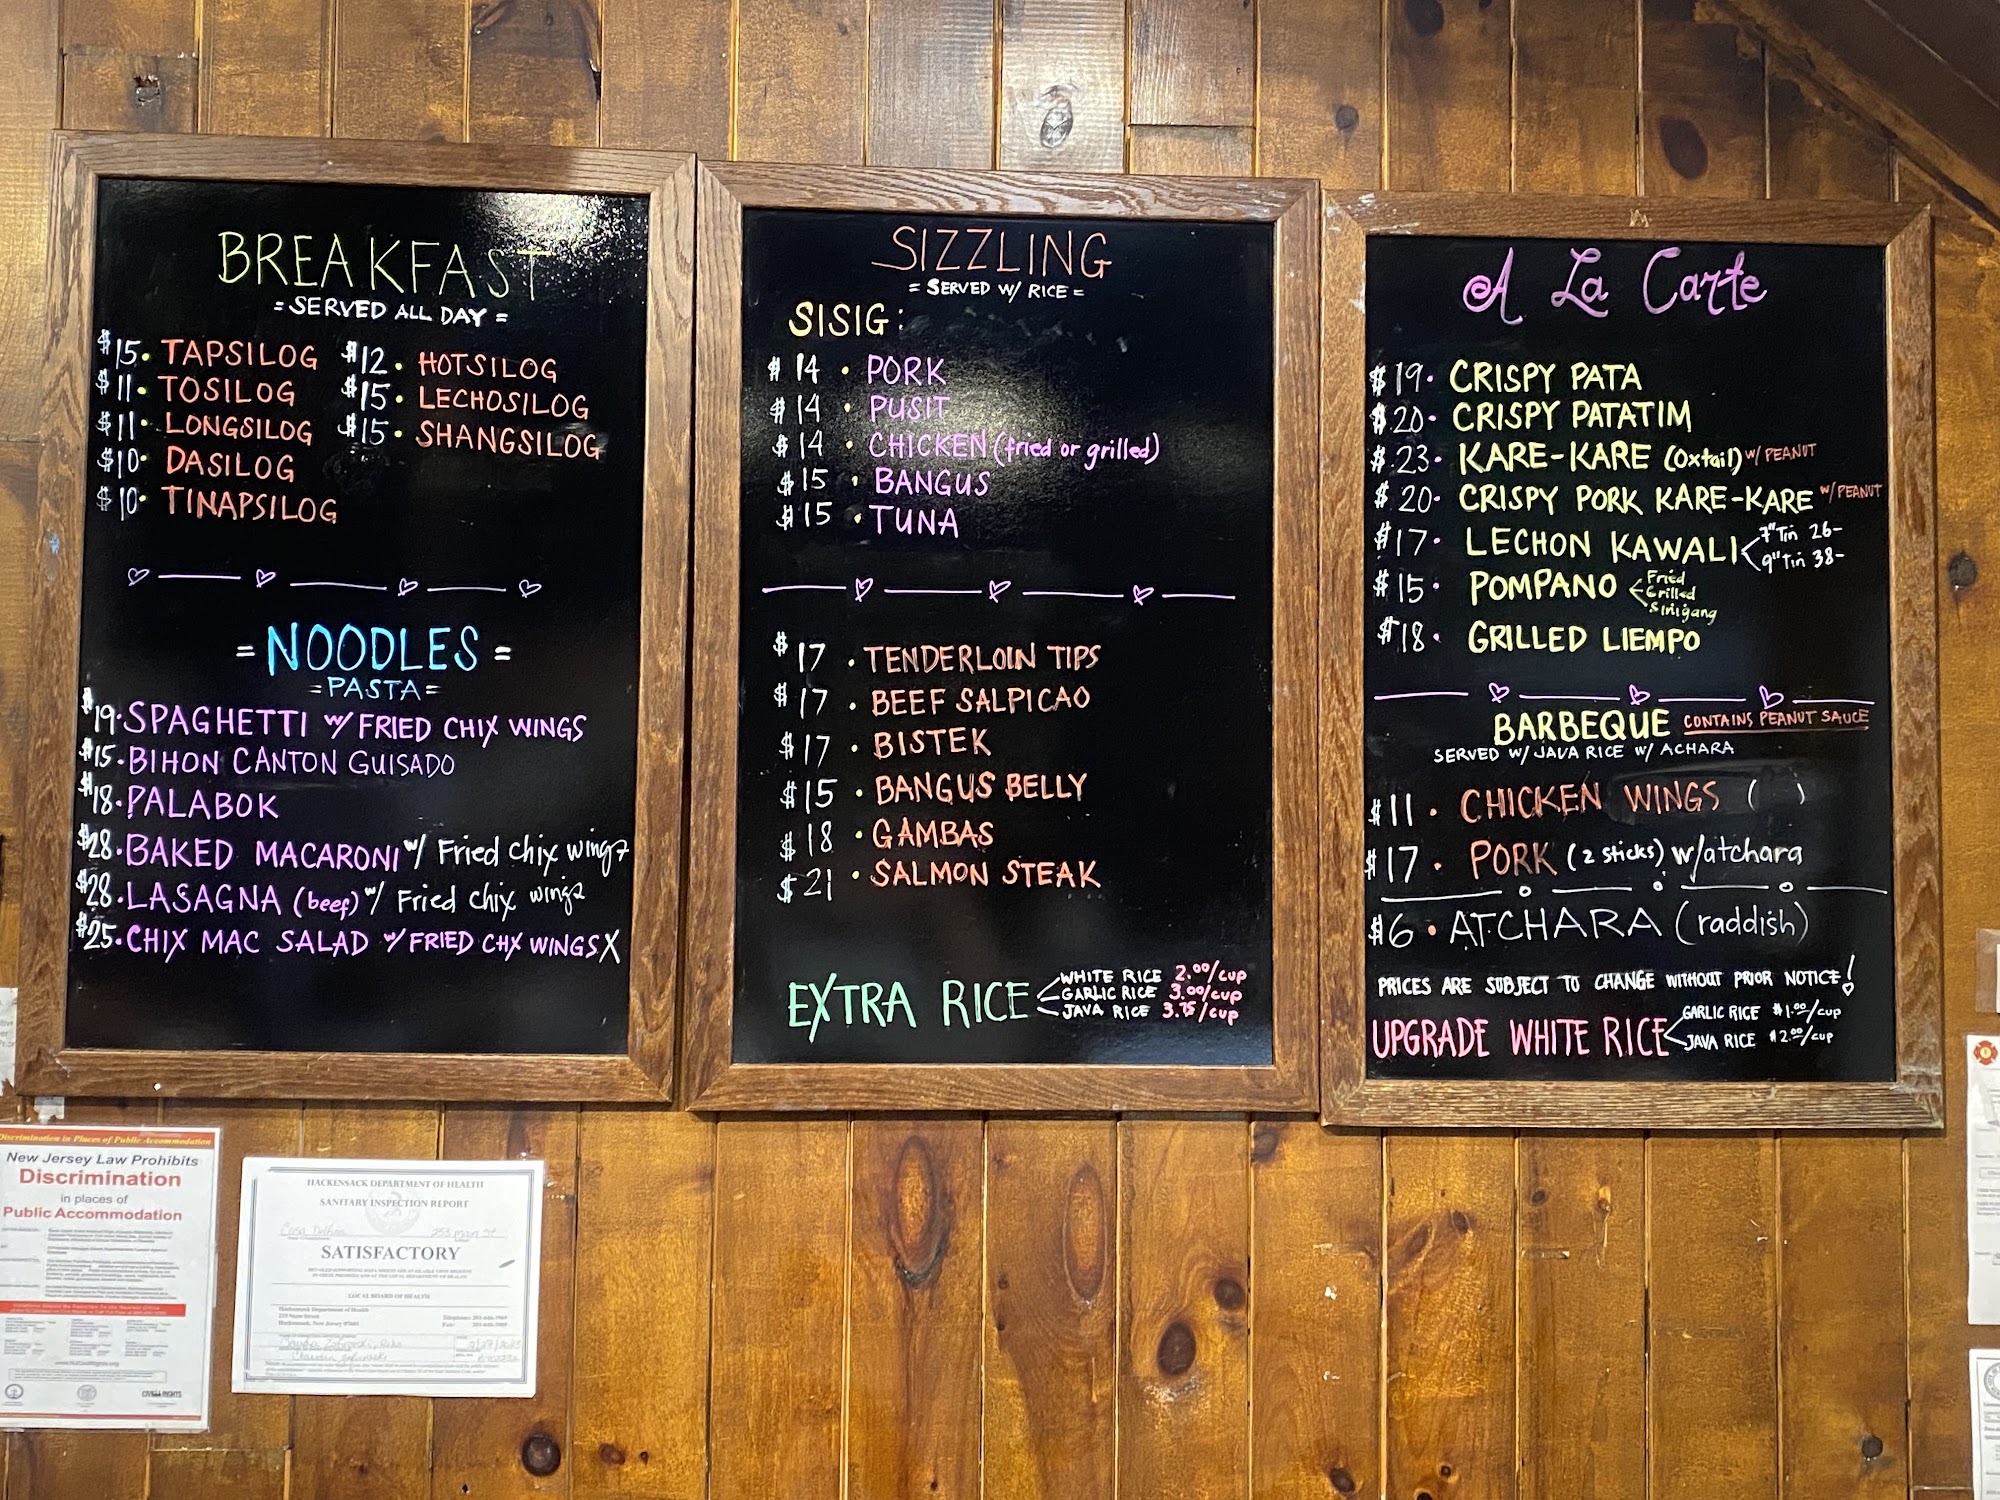 BREAKFAST
= SERVED ALL DAY =
$15. TAPSILOG
$11. TOSILOG
$11. LONGSILOG
$10. DASILOG
$10. TINAPSILOG
$12. HOTSILOG
$15. LECHOSILOG
$15. SHANGSILOG
= NOODLES =
=PASTA=
$19. SPAGHETTI w/ FRIED CHIX WINGS
$15. BIHON CANTON GUISADO
$18. PALABOK
$28. BAKED MACARONI w/ Fried chix wings
$28. LASAGNA (beef) w/ Fried chix wings
$25. CHIX MAC SALAD w/ FRIED CHX WINGS X
SIZZLING
= SERVED W/ RICE =
SISIG:
$14 . PORK
$14 . PUSIT
$14 . CHICKEN (fried or grilled)
$15 . BANGUS
$15 . TUNA
$17 . TENDERLOIN TIPS
$17 . BEEF SALPICAO
$17 . BISTEK
$15 . BANGUS BELLY
$18 . GAMBAS
$21 . SALMON STEAK
EXTRA RICE
WHITE RICE 2.00/cup
GARLIC RICE 3.00/cup
JAVA RICE 3.75/cup
A La Carte
$19. CRISPY PATA
$20. CRISPY PATATIM
$23. KARE-KARE (Oxtail) w/ PEANUT
$20. CRISPY PORK KARE-KARE w/ PEANUT
$17. LECHON KAWALI
7" Tin 26-
9" Tin 38-
$15. POMPANO
Fried
Grilled
Sinigang
$18. GRILLED LIEMPO
BARBEQUE CONTAINS PEANUT SAUCE
SERVED W/ JAVA RICE W/ ACHARA
$11. CHICKEN WINGS ( )
$17. PORK (2 sticks) w/atchara
$6. ATCHARA (raddish)
PRICES ARE SUBJECT TO CHANGE WITHOUT PRIOR NOTICE!
UPGRADE WHITE RICE
GARLIC RICE $1.00/cup
JAVA RICE $2.00/cup
Discrimination in Places of Public Accommodation
New Jersey Law Prohibits
Discrimination
in places of
Public Accommodation
HACKENSACK DEPARTMENT OF HEALTH
SANITARY INSPECTION REPORT
253 main st
SATISFACTORY
LOCAL BOARD OF HEALTH
Hackensack Department of Health
Hackensack, New Jersey 07601